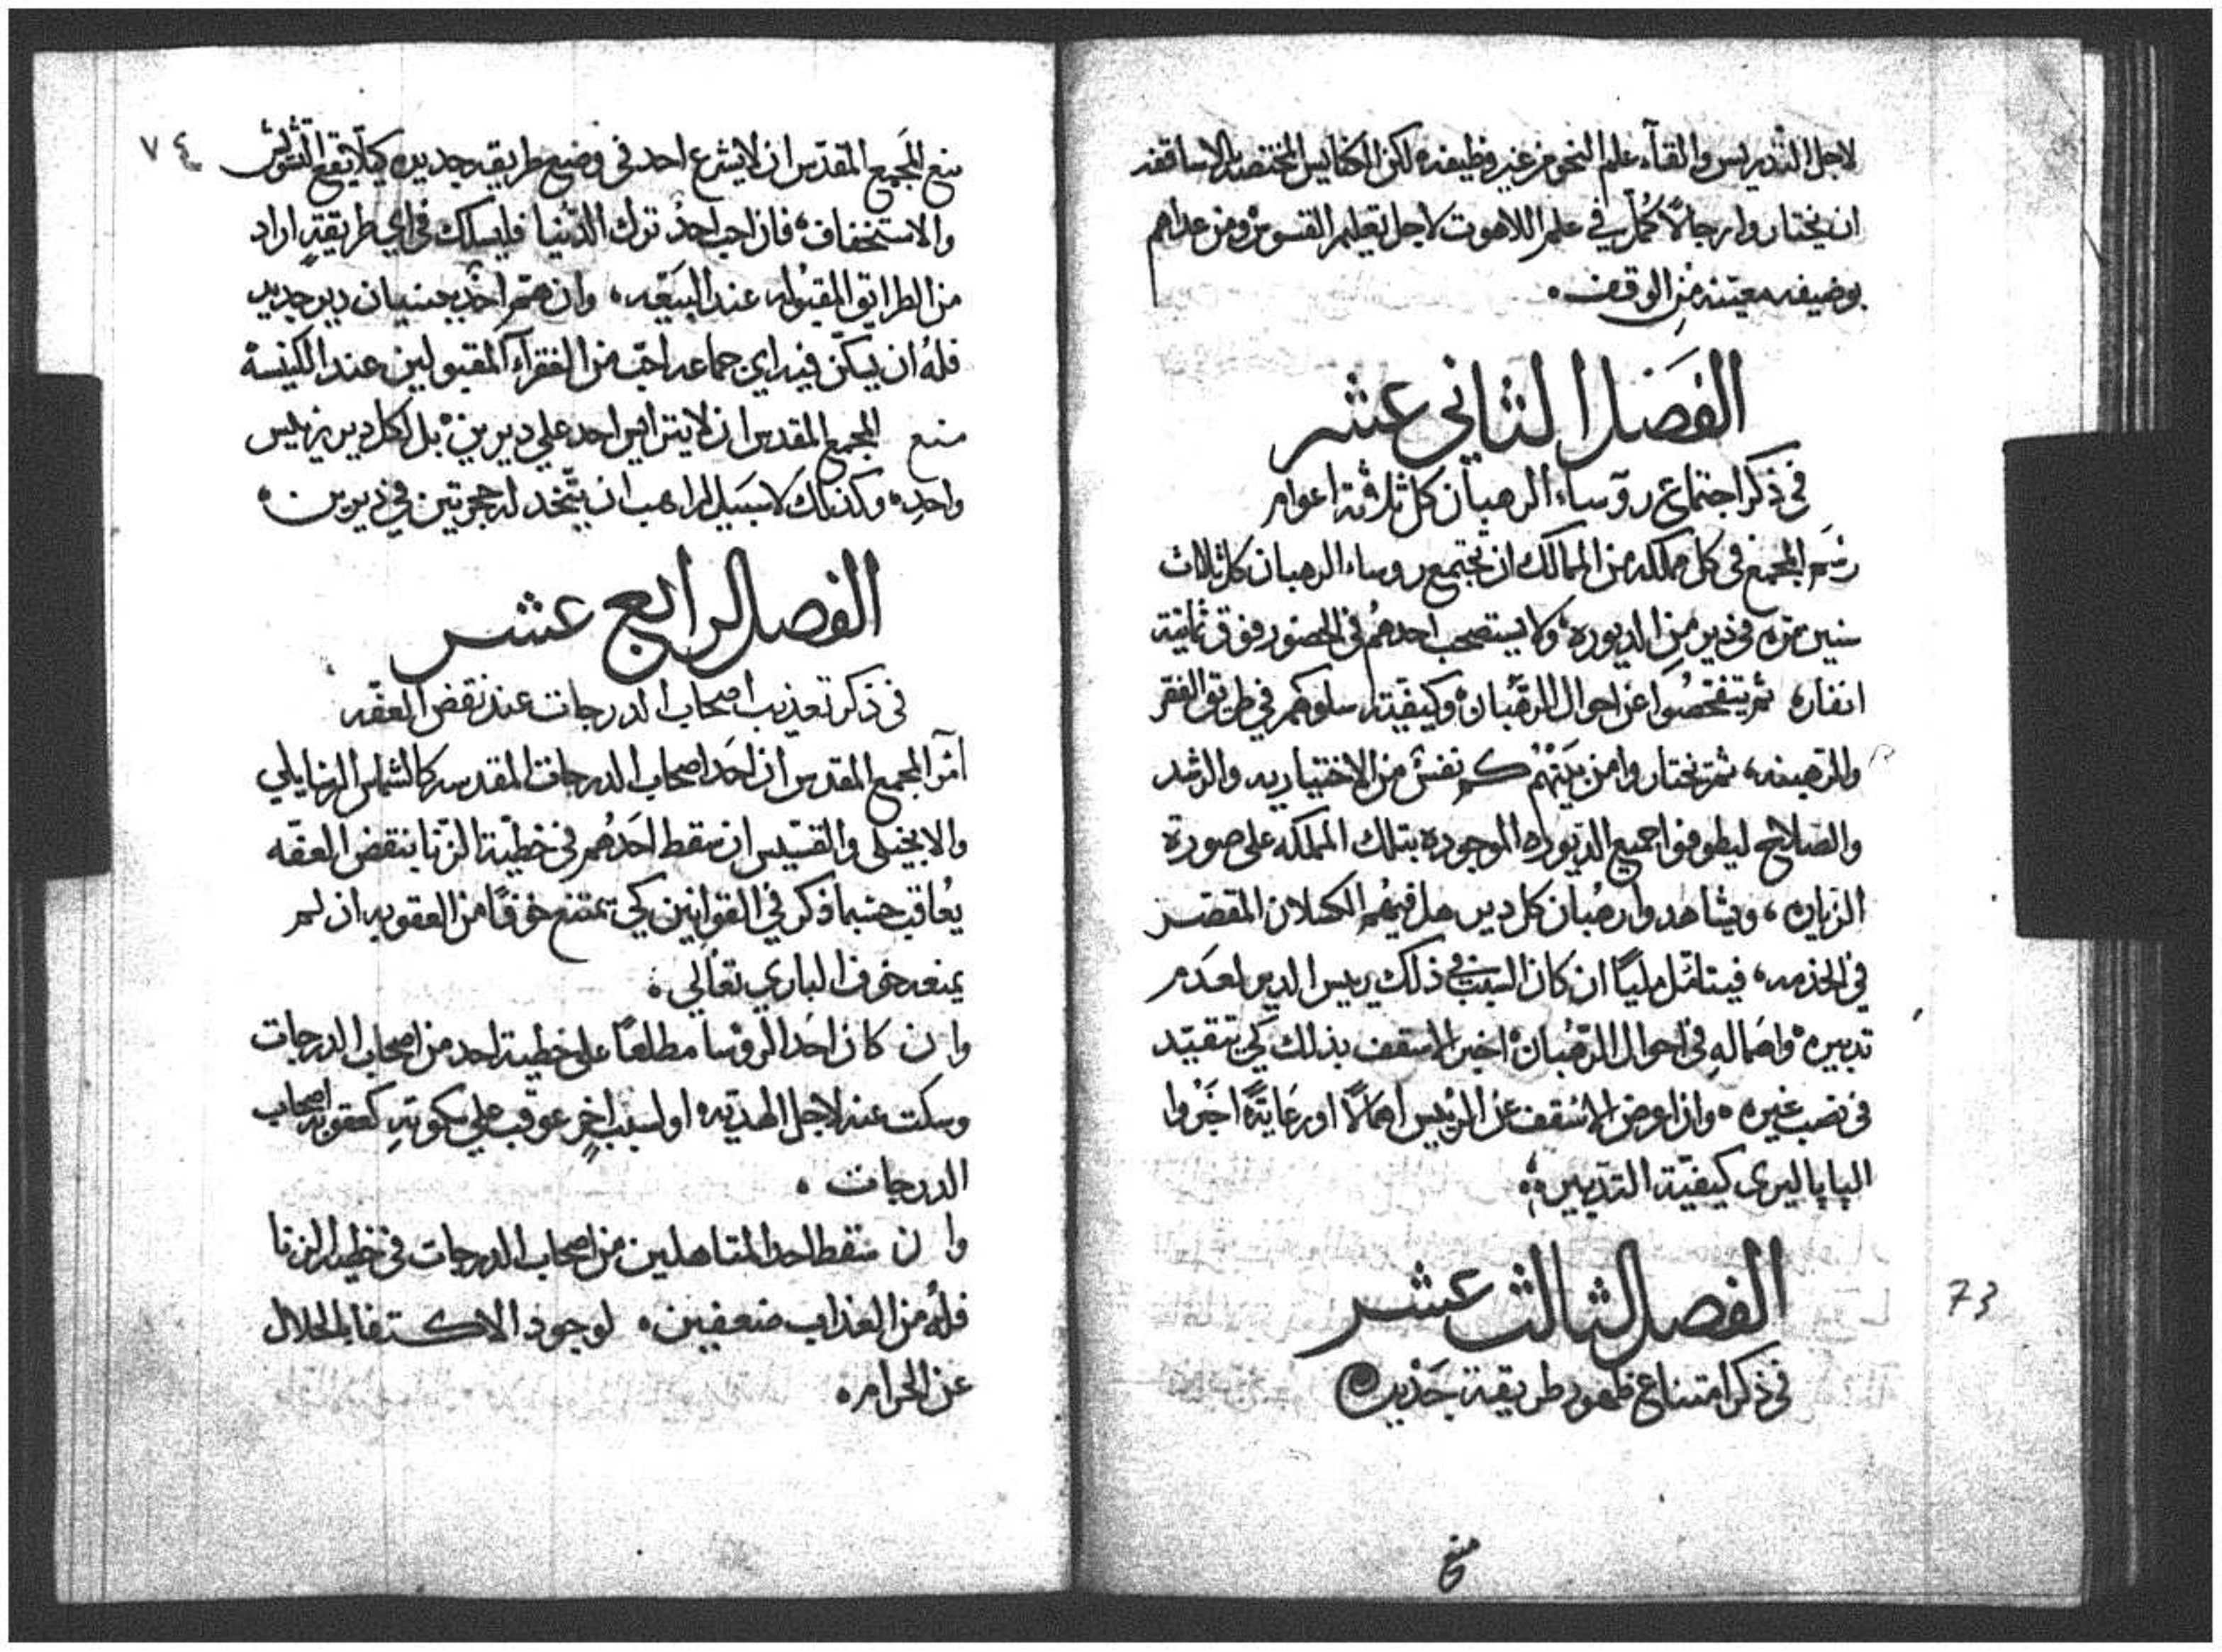 لاجل التدريس والقآء علم النحو من غير وظيفه لكن الكنايس المختصه بالاساقفه
ان يختاروا رجالاً كُمّل في علم اللاهوت لاجل تعليم القسوس ومن عداهم
بوضيفه معينه من الوقف
الفصل الثاني عشر
في ذكر اجتماع روساء الرهبان كل ثلاثة اعوام
رسم المجمع في كل مملكه من الممالك ان تجتمع روساء الرهبان كل ثلاث
سنين مره في دير من الديوره ولا يستصحب احدهم في الحضور فوق ثمانية
انفار ثم يتفحصوا عن احوال الرهبان وكيفية سلوكهم في طريق الفقر
والرهبنه ثم يختاروا من بينهم كم نفس من الاختياريه والرشد
والصلاح ليطوفوا جميع الديوره الموجوده بتلك المملكه على صورة
الزياره ويشاهدوا رهبان كل دير هل فيهم الكسلان المقصر
في الخدمه فيتامل ملياً ان كان السبب في ذلك رييس الدير لعدم
تدبيره واهماله في احوال الرهبان اخبر الاسقف بذلك كي يتقيد
في نصب غيره وان اعرض الاسقف عن الرييس اهمالاً او رعايةً اخبروا
الپاپا ليرى كيفية التدبير
الفصل الثالث عشر
في ذكر امتناع ظهور طريقة جديده
73
منع
٧٤
منع المجمع المقدس ان لا يشرع احد في وضع طريقه جديده كيلا يقع التشويش
والاستخفاف فان احب احد ترك الدنيا فليسلك في اي طريقةٍ اراد
من الطرايق المقبوله عند البيعه وان همّ احد ببنيان دير جديد
فلهُ ان يسكّن فيه اي جماعه احب من الفقرآء المقبولين عند الكنيسة
منع المجمع المقدس ان لا يتراس احد علي ديرين بل لكل دير رييس
واحد وكذلك لا سبيل لراهب ان يتخد له حجرتين في ديرين
الفصل الرابع عشر
في ذكر تعذيب اصحاب الدرجات عند نقض العفّه
امر المجمع المقدس ان احد اصحاب الدرجات المقدسه كالشماس الرسايلي
والانجيلي والقسّيس ان سقط احدهم في خطيّة الزنا بنقض العفّه
يُعاقب حسبما ذكر في القوانين كي يمتنع خوفاً من العقوبه ان لم
يمنعه خوف الباري تعالي
وان كان احد الروسا مطلعاً على خطية احد من اصحاب الدرجات
وسكت عنه لاجل الهديّه او لسببٍ اخرٍ عوقب علي سكوتهِ كعقوبة اصحاب
الدرجات
وان سقط احد المتاهلين من اصحاب الدرجات في خطية الزنا
فلهُ من العذاب ضعفين لوجود الاكتفا بالحلال
عن الحرام